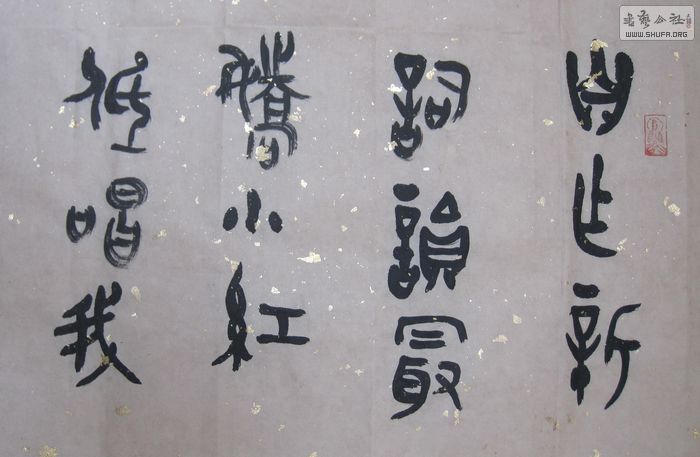 自作新
詞韻最
嬌小紅
低唱我
書法公社
WWW.SHUFA.ORG